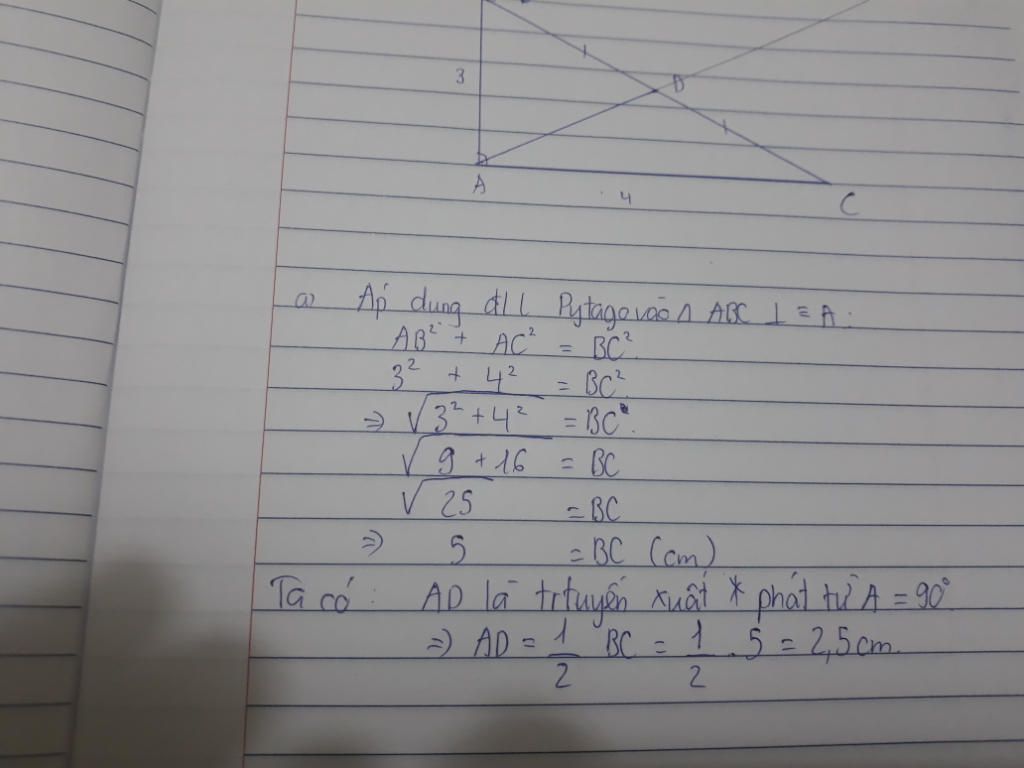 3
D
A
4
C
a) Áp dụng đ/l Pytago vào Δ ABC ⊥ ≡ A:
AB² + AC² = BC².
3² + 4² = BC².
⇒ √(3² + 4²) = BC.
√(9 + 16) = BC
√25 = BC
⇒ 5 = BC (cm)
Ta có: AD là trtuyến xuất * phát từ A = 90°
⇒ AD = 1/2 BC = 1/2 . 5 = 2,5cm.